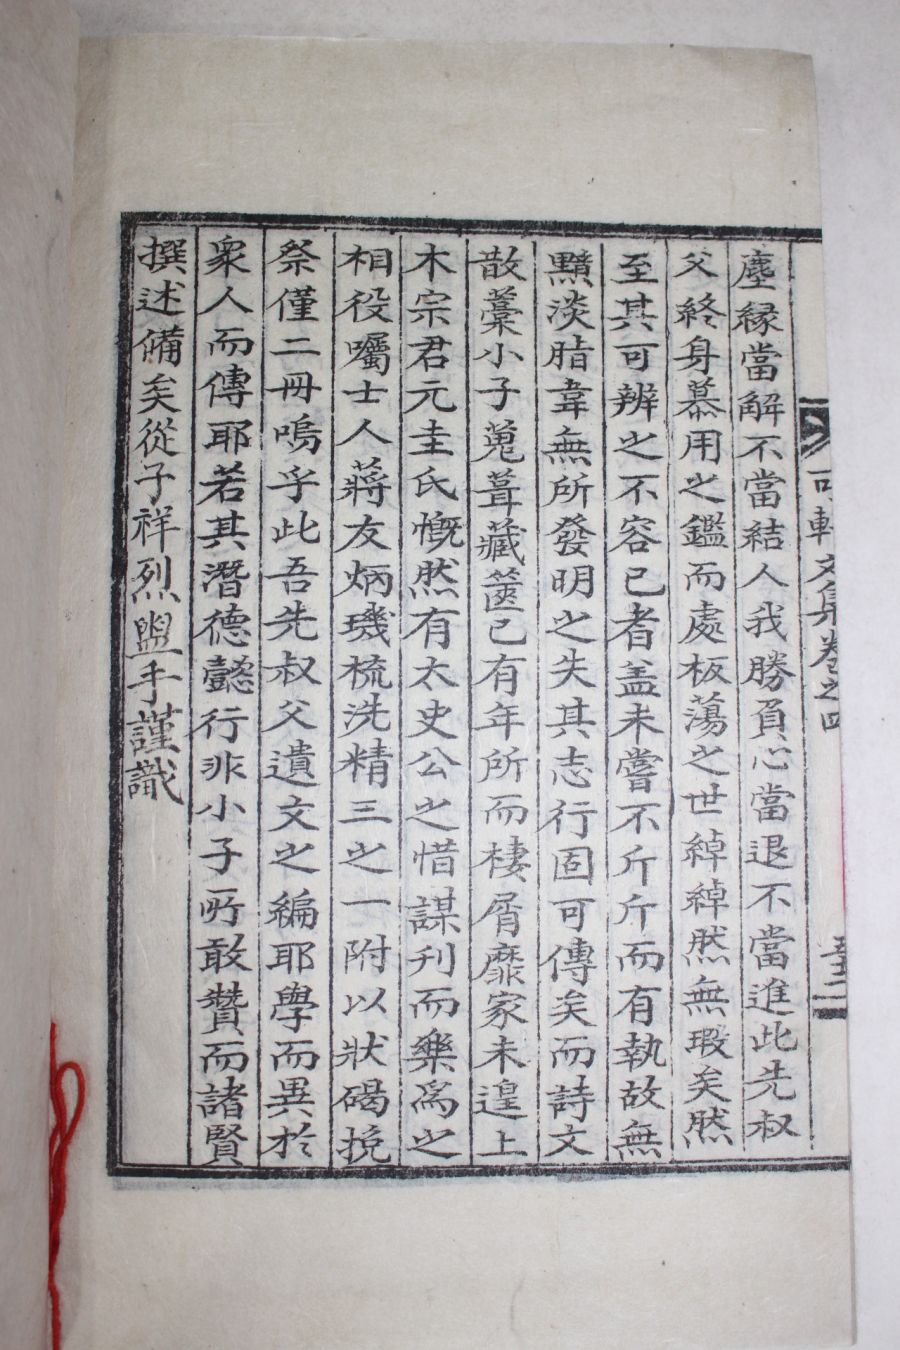 塵緣當解不當結人我勝負心當退不當進此先叔
父終身慕用之鑑而處板蕩之世綽綽然無瑕矣然
至其可辨之不容已者盖未嘗不斤斤而有執故無
黯淡脂韋無所發明之失其志行固可傳矣而詩文
散藁小子蒐葺藏篋已有年所而棲屑靡家未遑上
木宗君元圭氏慨然有太史公之惜謀刋而樂爲之
相役囑士人蔣友炳璣梳洗精三之一附以狀碣挽
祭僅二冊嗚乎此吾先叔父遺文之編耶學而異於
衆人而傳耶若其潛德懿行非小子所敢贊而諸賢
撰述備矣從子祥烈盥手謹識
可軒文集卷之四
五十二